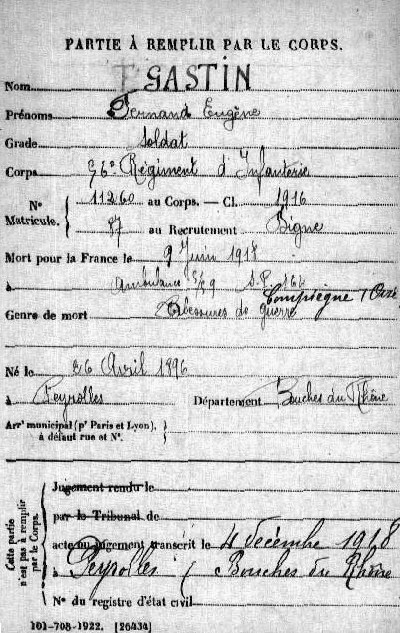 PARTIE À REMPLIR PAR LE CORPS.
Nom GASTIN
Prénoms Fernand Eugène
Grade Soldat
Corps Régiment d'Infanterie
N° Matricule. 11260 au Corps. — Cl. 1916
87 au Recrutement Digne
Mort pour la France le 9 Juin 1918
à Ambulance S.P. 164
Compiègne (Oise
Genre de mort Blessures de guerre
Né le 26 Avril 1896
à Peyrolles Département Bouches du Rhône
Arrt municipal (pr Paris et Lyon), à défaut rue et N°.
Cette partie n'est pas à remplir par le Corps.
Jugement rendu le
par le Tribunal de
acte ou jugement transcrit le 4 décembre 1918
à Peyrolles / Bouches du Rhône
N° du registre d'état civil
101-708-1922. [26434]